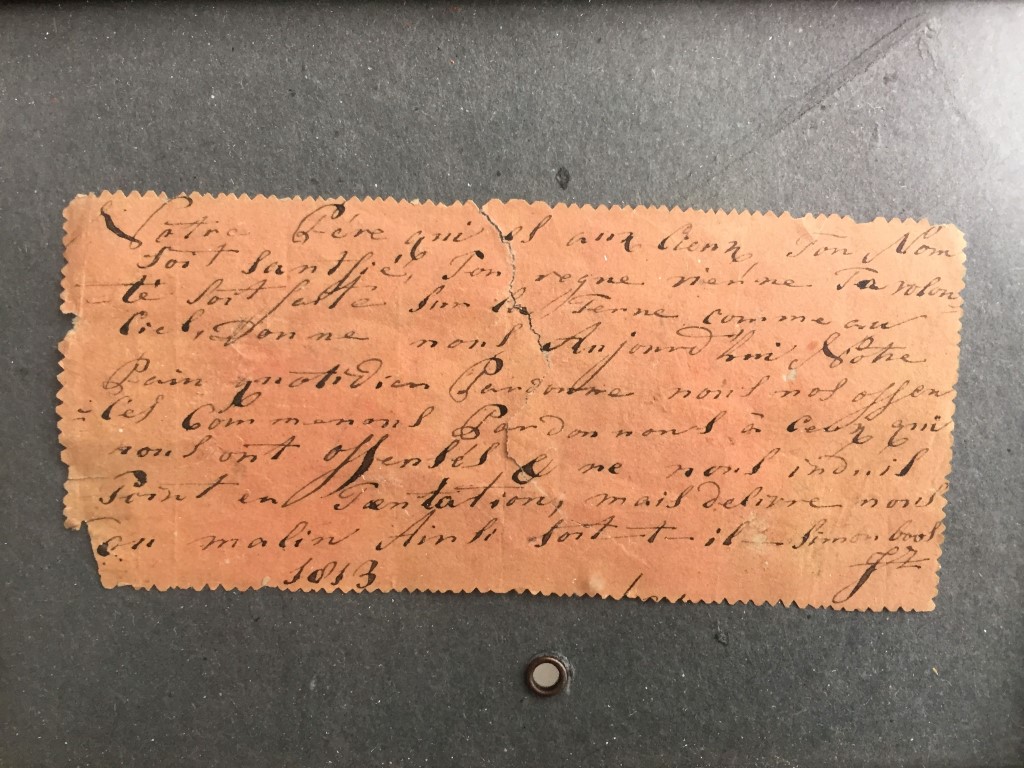 Nôtre Pére qui es aux Cieux Ton Nom
Soit Santifié, Ton regne viénne Ta volon
-té Soit faite Sur la Terre comme au
Ciel, Donne nous Aujourd'hui, Nôtre
Pain quotidien Pardonne nous nos offen
=Ces Comme nous Pardonnons à Ceux qui
nous ont offensés & ne nous induis
Point en Tantation, mais delivre nous
Du malin Ainsi soit-t-il Simon
1813